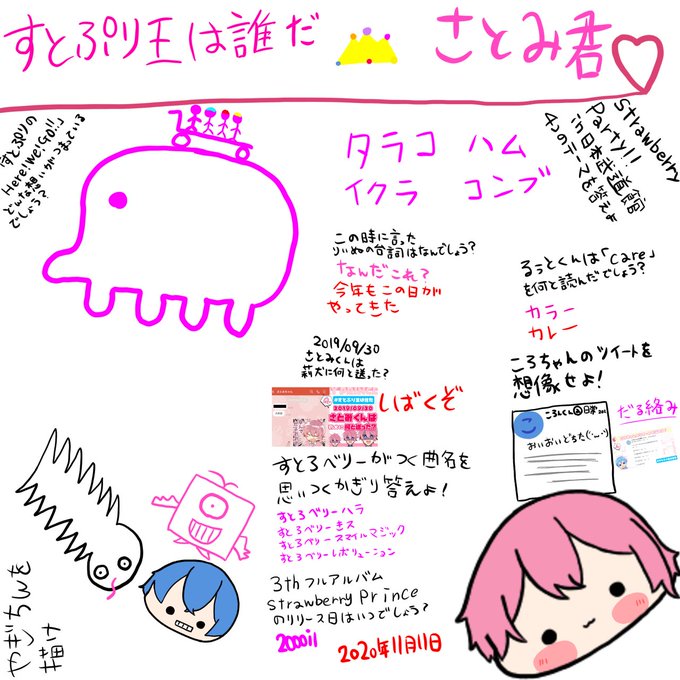 すとぷり王は誰だ さとみ君
すとぷりの
Here!We!Go!!に
どんな想いがつまっている
でしょう?
タラコ ハム
イクラ コンブ
Strawberry
Party!!
in日本武道館
4つのテーマを答えよ
この時に言った
りいぬの台詞はなんでしょう?
なんだこれ?
今年もこの日が
やってきた
るぅとくんは「Care」
を何と読んだでしょう?
カラー
カレー
2019/09/30
さとみくんは
莉犬に何と送った?
2019/09/30
さとみくんは
しばくぞ
ころちゃんのツイートを
想像せよ!
こ
おいおいどちた(˙꒳˙)
だる絡み
すとろベリーがつく曲名を
思いつくかぎり答えよ!
すとろベリーハラ
すとろベリーきス
すとろベリースマイルマジック
すとろベリーレボリューション
3thフルアルバム
Strawberry Prince
のリリース日はいつでしょう?
2020年11月11日
やぎちんを
描け